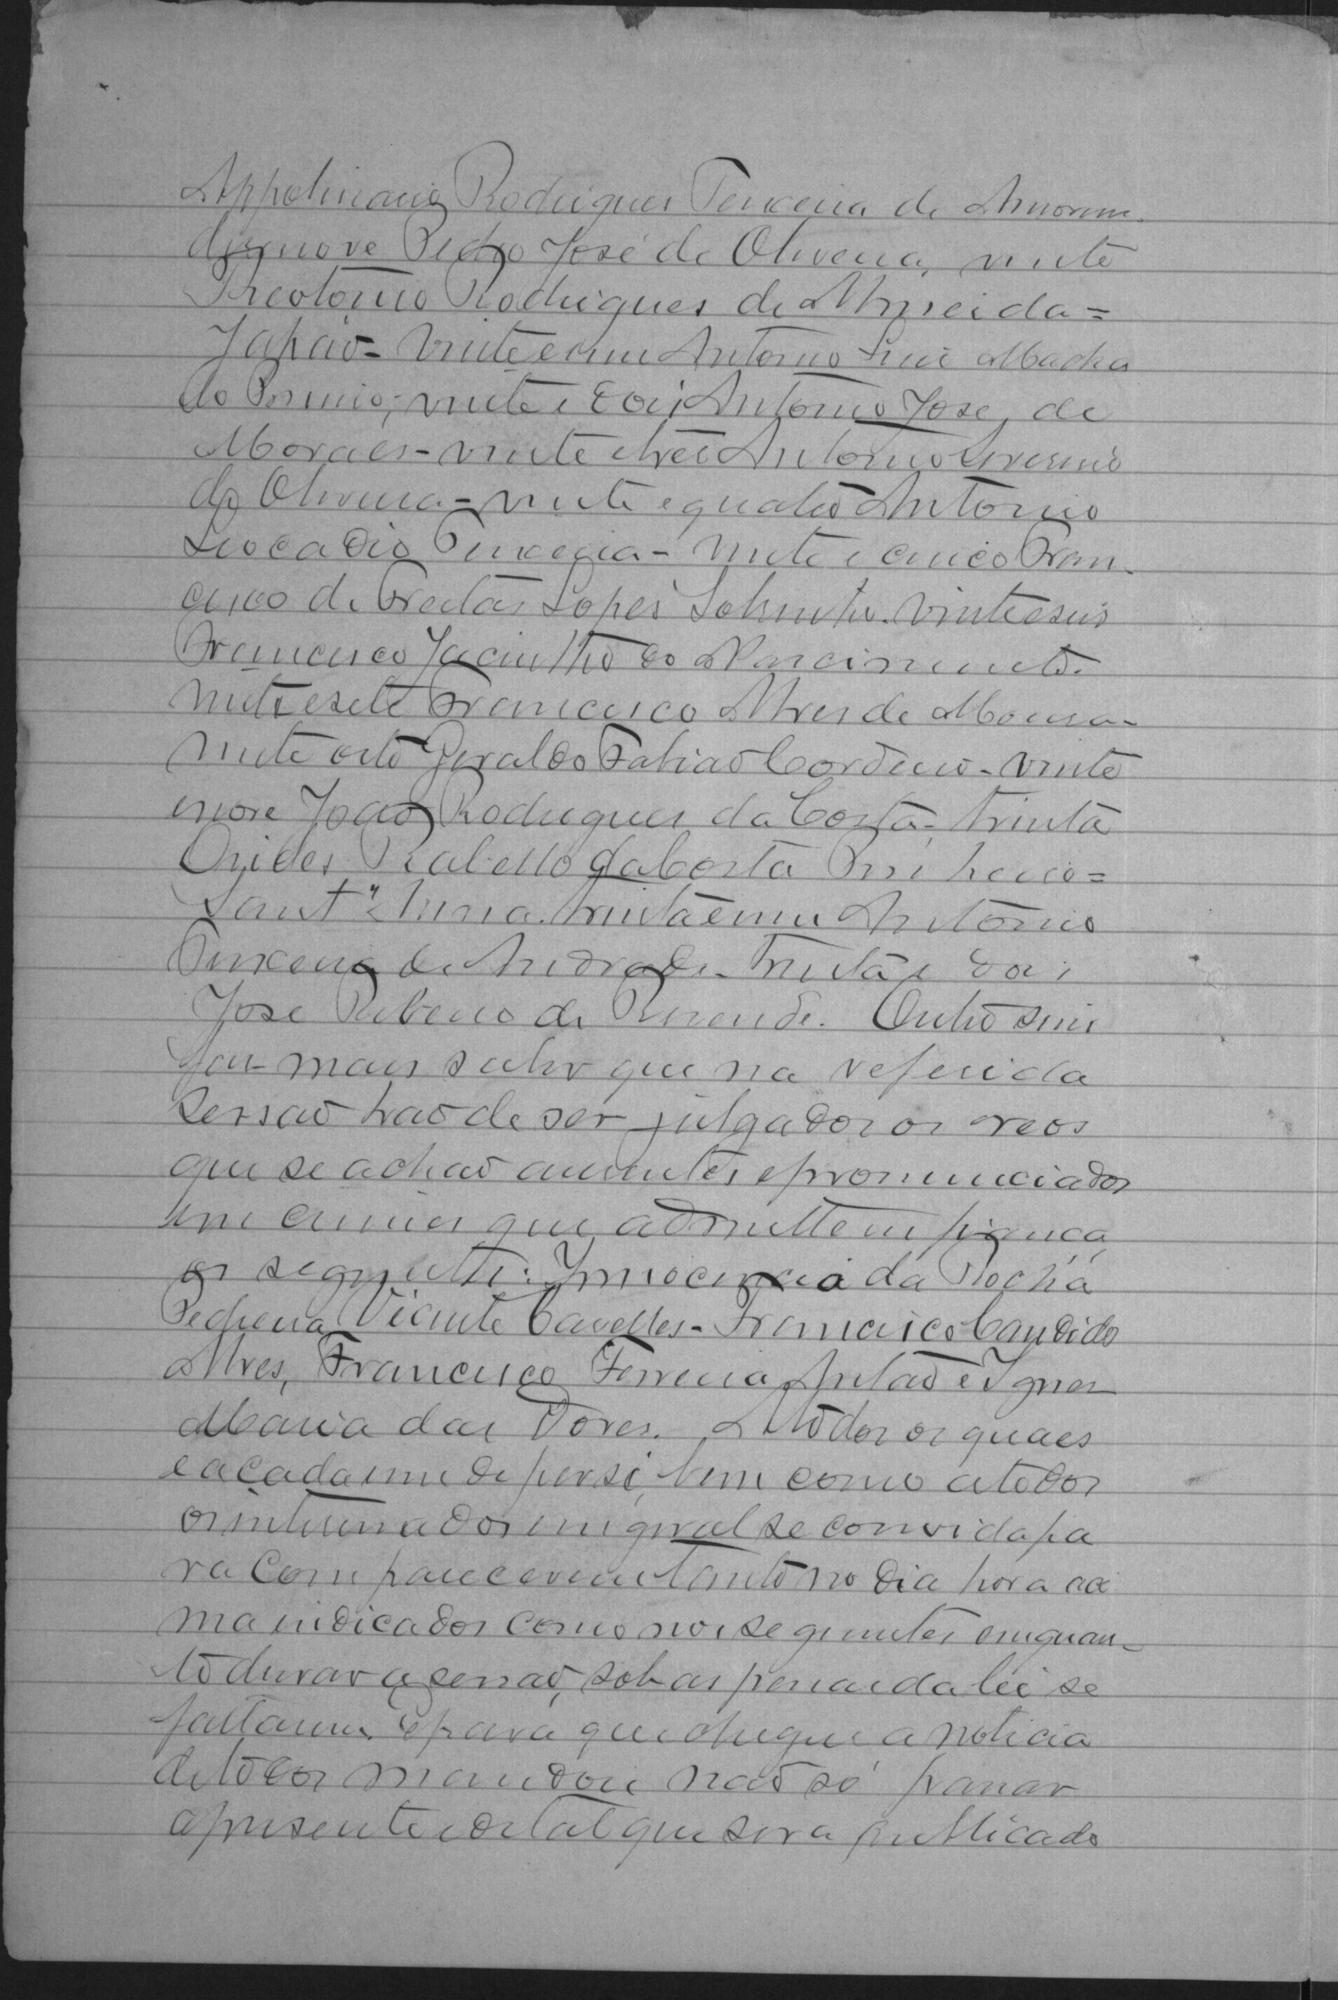 Appolinario Rodrigues Teixeira de Amorim.
dizenove Pedro José de Oliveira, vinte
Theotonio Rodrigues de Almeida =
Japão = vinte e um Antonio Luiz Macha
do Primio; vinte e dois Antonio José de
Moraes - vinte e tres Antonio Liverino
de Oliveira = vinte e quatro Antonio
Leocadio Teixeira - vinte e cinco Fran-
cisco de Freitas Lopes Sobrinho. vinte e seis
Francisco Jacintho do Nascimento.
vinte e sete Francisco Alves de Moura -
vinte oito Geraldo Fabiaõ Cordeiro - vinte
e nove Joaõ Rodrigues da Costa - trinta
Orides Rabello da Costa Pinheiro =
Sant'Anna. trinta e um Antonio
Teixeira de Andrade - trinta e dois
José Ribeiro de Rezende. Outro sim
faz mais saber que na referida
sessaõ haõ de ser julgados os reos
que se achaõ auzentes e pronunciados
em crimes que admittem fiança
os seguintes: Innocencia da Rocha
Pedreira Vicente Cavelles - Francisco Candido
Alves, Francisco Ferreira Antaõ e Ignes
Maria das Dores. A todos os quaes
e a cada um de per si, bem como a todos
os intersados em geral se convida pa
ra comparecerem tanto no dia hora aci
ma indicados como nos seguintes emquan-
to durar a sessaõ, sob as penas da lei se
faltarem. E para que chegue a noticia
de todos mandou naõ só passar
a presente edital que sera publicado